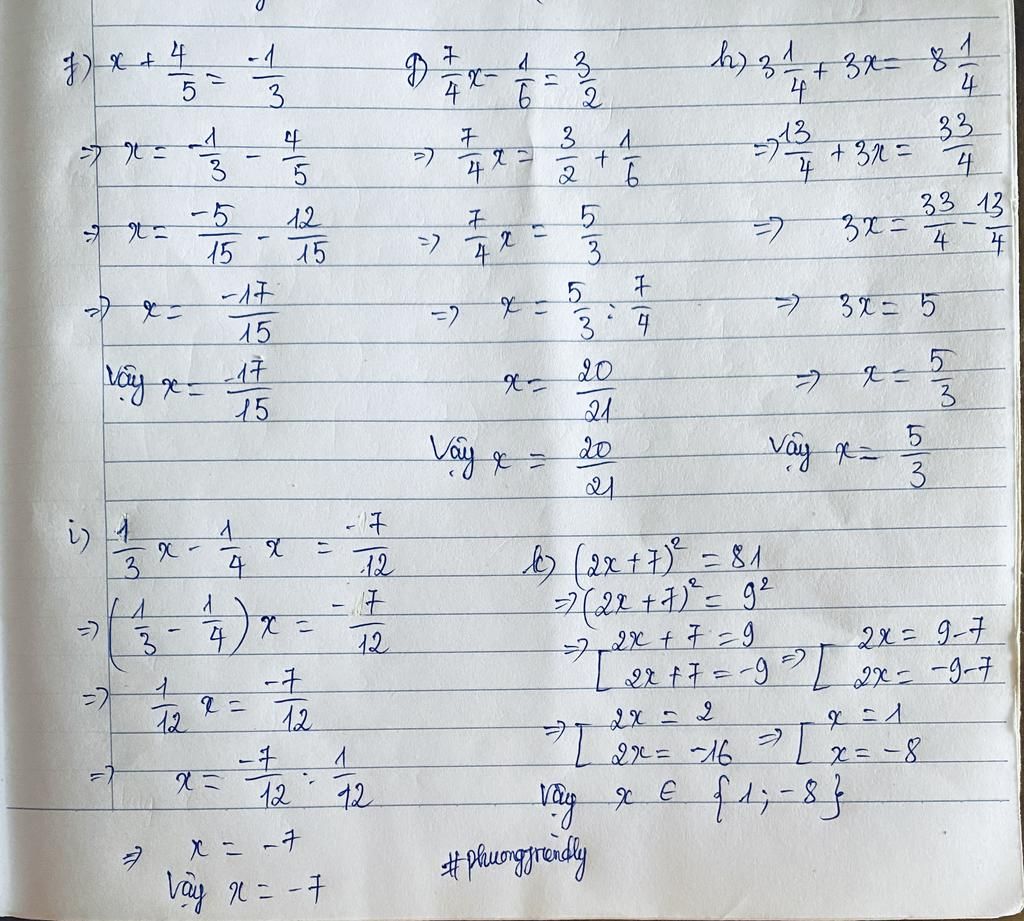 f) x + 4/5 = -1/3
=> x = -1/3 - 4/5
=> x = -5/15 - 12/15
=> x = -17/15
Vậy x = -17/15
g) 7/4 x - 1/6 = 3/2
=> 7/4 x = 3/2 + 1/6
=> 7/4 x = 5/3
=> x = 5/3 : 7/4
x = 20/21
Vậy x = 20/21
h) 3 1/4 + 3x = 8 1/4
=> 13/4 + 3x = 33/4
=> 3x = 33/4 - 13/4
=> 3x = 5
=> x = 5/3
Vậy x = 5/3
i) 1/3 x - 1/4 x = -7/12
=> (1/3 - 1/4) x = -7/12
=> 1/12 x = -7/12
=> x = -7/12 : 1/12
=> x = -7
Vậy x = -7
k) (2x + 7)² = 81
=> (2x + 7)² = 9²
=> [ 2x + 7 = 9 => [ 2x = 9-7
2x + 7 = -9 2x = -9-7
=> [ 2x = 2 => [ x = 1
2x = -16 x = -8
Vậy x ∈ {1; -8}
#phuongfriendly